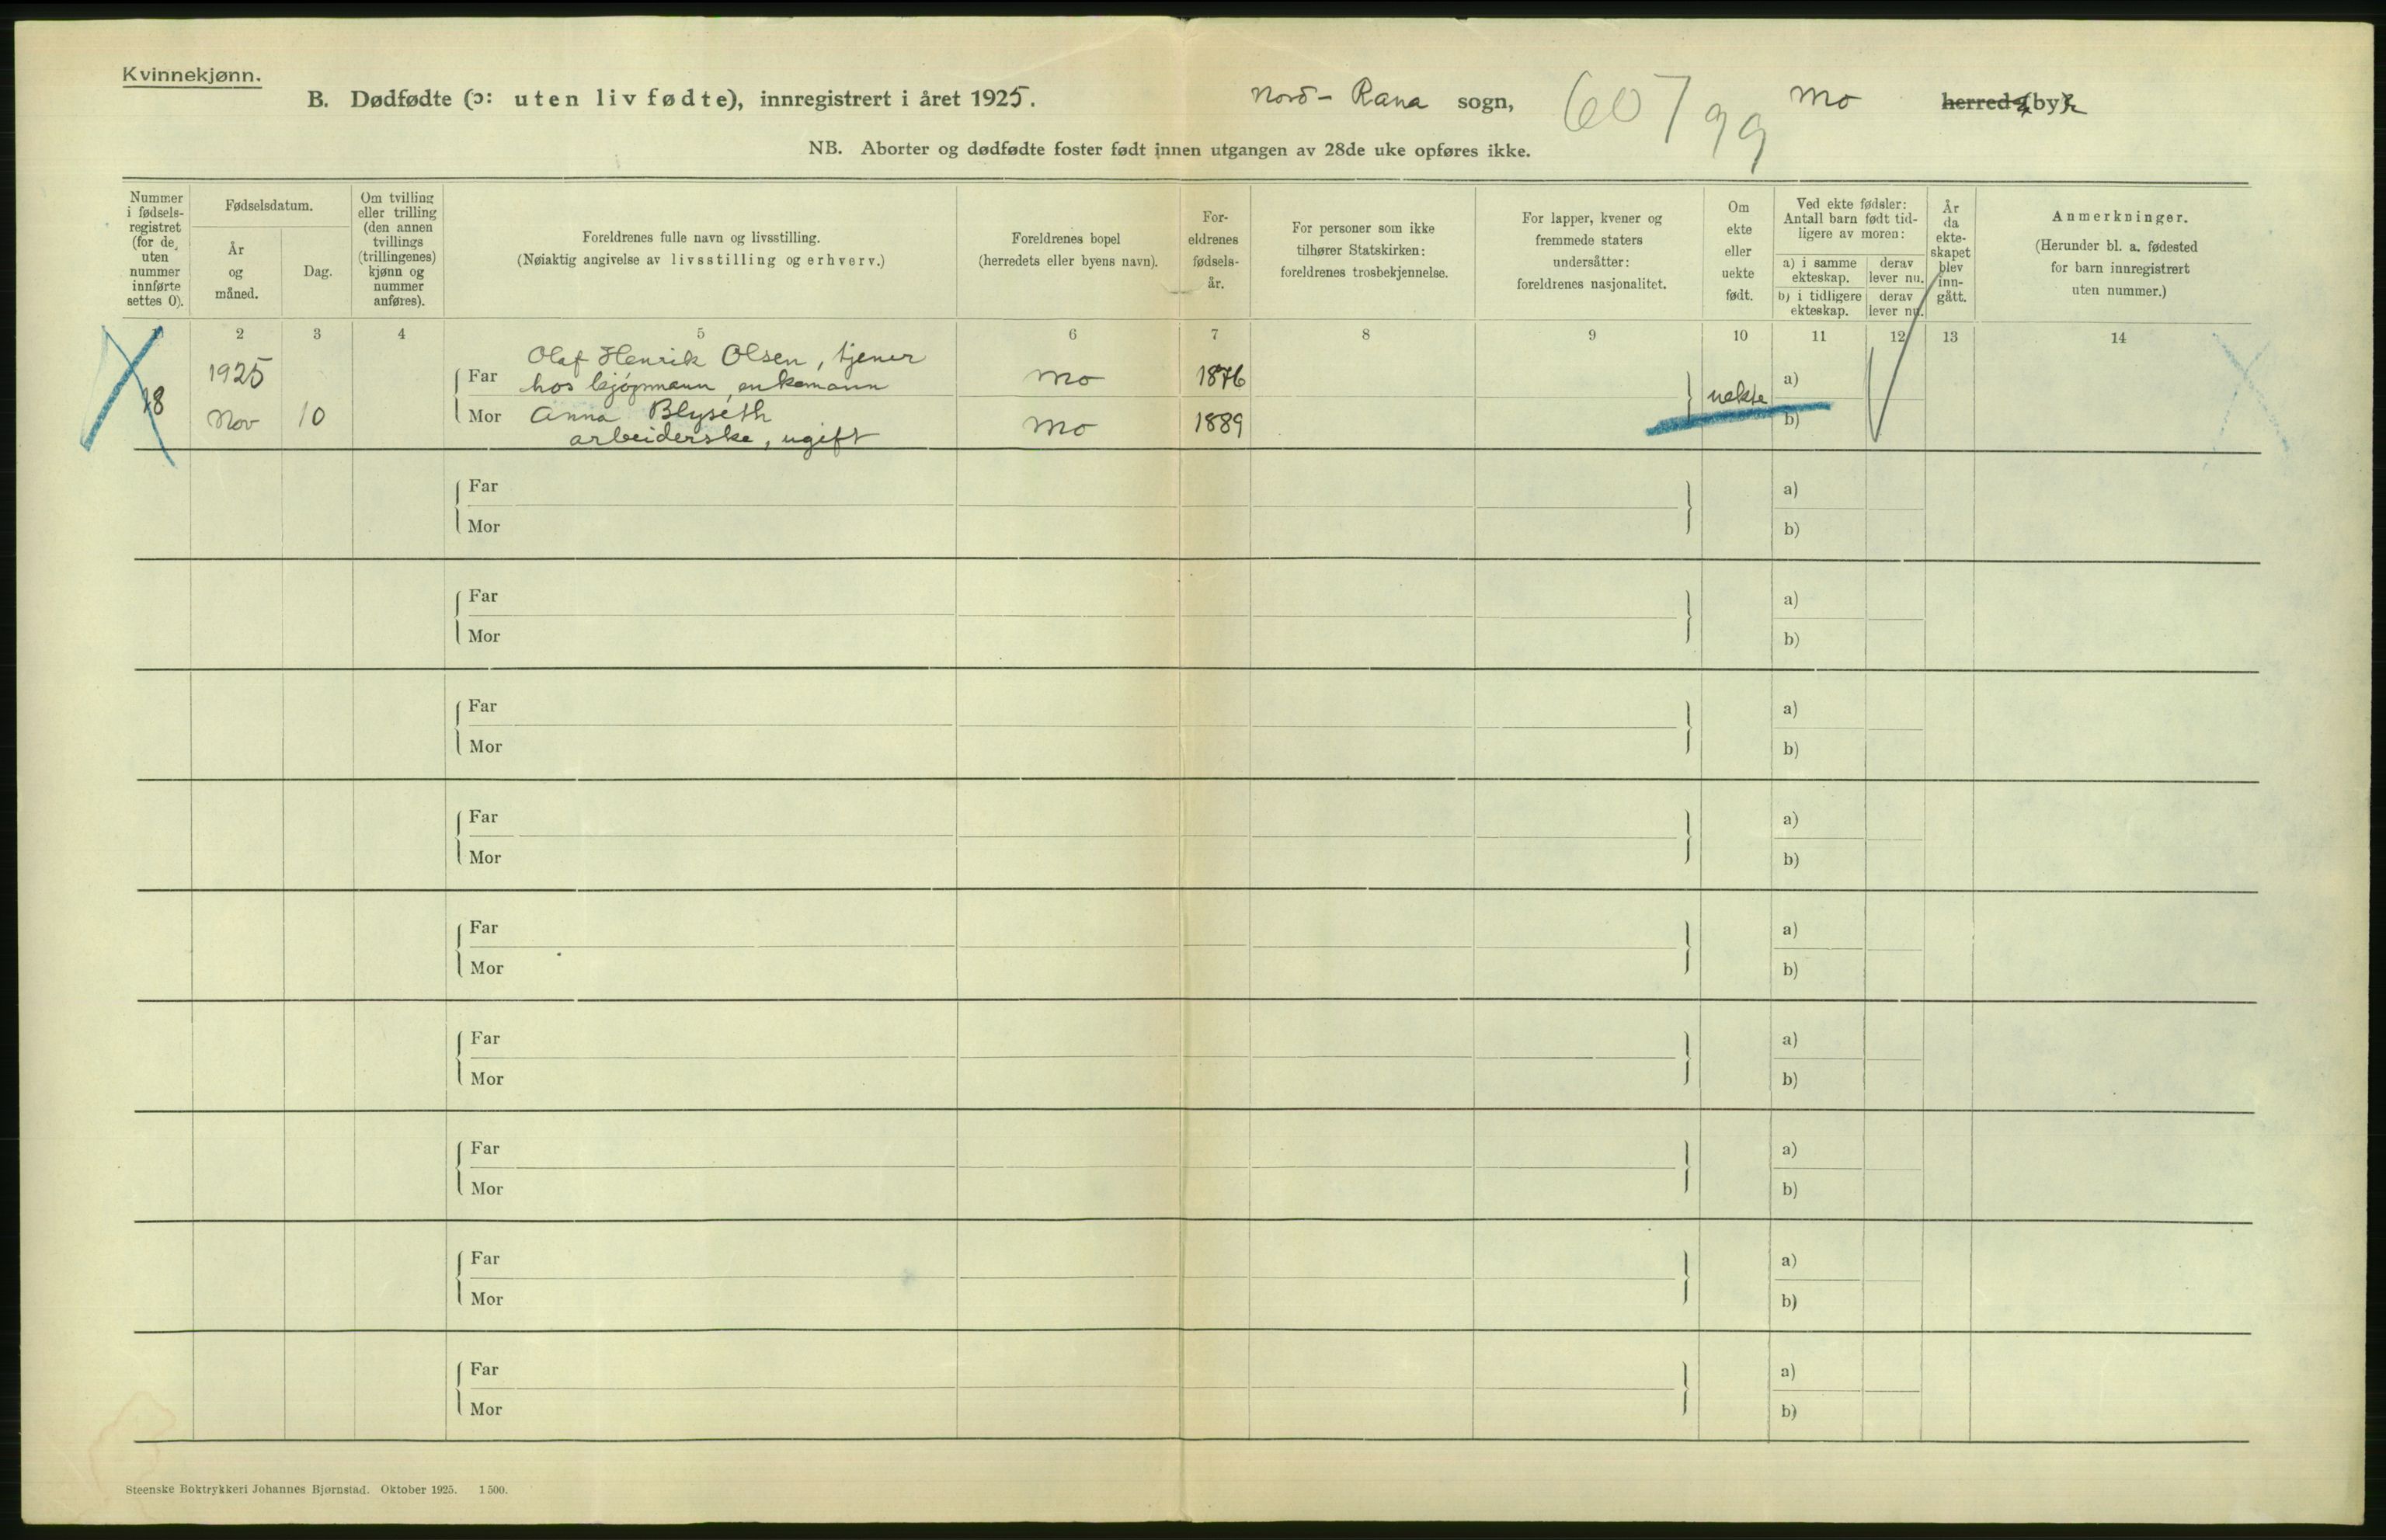 Kvinnekjønn.
B. Dødfødte (ɔ: uten liv fødte), innregistrert i året 1925. Nord-Rana sogn, Mo herred (by).
607
99
NB. Aborter og dødfødte foster født innen utgangen av 28de uke opføres ikke.
Nummer i fødsels-registret (for de, uten nummer innførte settes 0).
Fødselsdatum.
År og måned.
Dag.
Om tvilling eller trilling (den annen tvillings (trillingenes) kjønn og nummer anføres).
Foreldrenes fulle navn og livsstilling.
(Nøiaktig angivelse av livsstilling og erhverv.)
Foreldrenes bopel
(herredets eller byens navn).
For-eldrenes fødsels-år.
For personer som ikke tilhører Statskirken: foreldrenes trosbekjennelse.
For lapper, kvener og fremmede staters undersåtter: foreldrenes nasjonalitet.
Om ekte eller uekte født.
Ved ekte fødsler: Antall barn født tid-ligere av moren:
a) i samme ekteskap.
derav lever nu.
b) i tidligere ekteskap.
derav lever nu.
År da ekte-skapet blev inn-gått.
Anmerkninger.
(Herunder bl. a. fødested for barn innregistrert uten nummer.)
2 3 4 5 6 7 8 9 10 11 12 13 14
Olaf Henrik Olsen, tjener
1925 Far hos kjøpmann, enkemann Mo 1876 a)
18 uekte
Nov 10 Mor Anna Blyseth Mo 1889 b)
arbeiderske, ugift
Far a)
Mor b)
Far a)
Mor b)
Far a)
Mor b)
Far a)
Mor b)
Far a)
Mor b)
Far a)
Mor b)
Far a)
Mor b)
Far a)
Mor b)
Far a)
Mor b)
Steenske Boktrykkeri Johannes Bjørnstad. Oktober 1925. 1500.